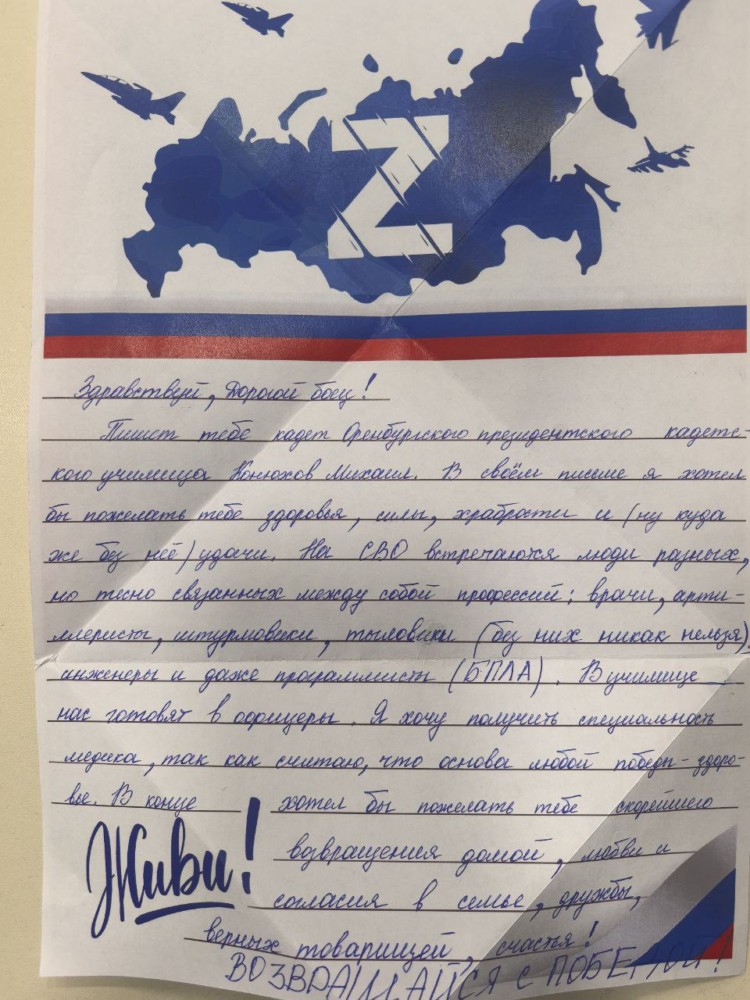 Z
Здравствуй, Дорогой боец!
Пишет тебе кадет Оренбургского президентского кадетс-
кого училища Конюхов Михаил. В своём письме я хотел
бы пожелать тебе здоровья, силы, храбрости и (ну куда
же без неё) удачи. На СВО встречаются люди разных,
но тесно связанных между собой профессий: врачи, арти-
ллеристы, штурмовики, тыловики (без них никак нельзя),
инженеры и даже программисты (БПЛА). В училище
нас готовят в офицеры. Я хочу получить специальность
медика, так как считаю, что основа любой победы - здоро-
вье. В конце хотел бы пожелать тебе скорейшего
возвращения домой, любви и
согласия в семье, дружбы,
верных товарищей, счастья!
Живи!
ВОЗВРАЩАЙСЯ С ПОБЕДОЙ!